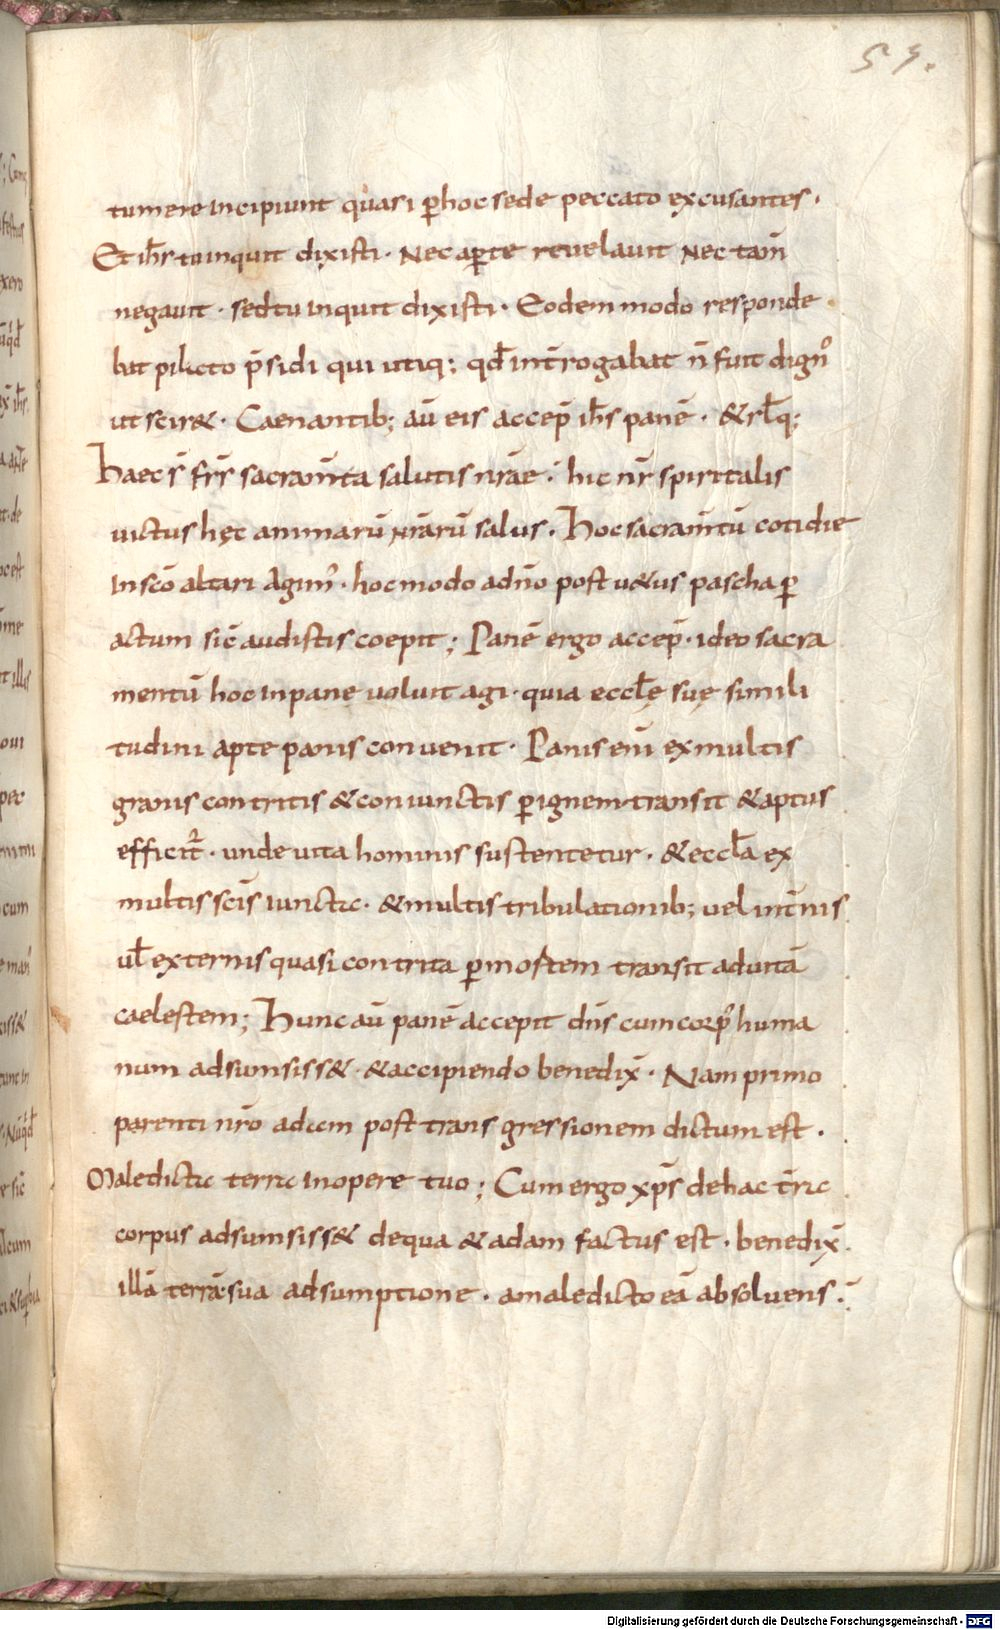 59.
tumere incipiunt quasi p̄ hoc se de peccato excusantes.
Et ih̄s tu inquit dixisti. Nec ap̄te revelavit nec tam̄
negavit. sed tu inquit dixisti. Eodem modo responde
bat pilato p̄sidi qui utiq; qd̄ int̄rogabat n̄ fuit dign᾽
ut scir&. Caenantib; aū eis accep̄ ih̄s panē. & rl̄q;
Haec s̄ fr̄s sacram̄ta salutis nr̄ae. hic nr̄ spiritalis
victus hęc animarū nr̄arū salus. Hoc sacram̄tū cotidie
in sc̄o altari agim᾽. hoc modo a dn̄o post v&us pascha p̄
actum sic̄ audistis coepit; Panē ergo accep̄. ideo sacra
mentū hoc in pane voluit agi. quia eccl̄ę suę simili
tudini apte panis convenit. Panis eni̅ ex multis
granis contritis & coniunctis p̄ ignem transit & aptus
efficit᾽. unde vita hominis sustentetur. & eccl̄a ex
multis sc̄is iuncta. & multis tribulationib; vel int̄nis
vl̄ externis quasi contrita p̄ mortem transit ad vitā
caelestem; Hunc aū panē accepit dn̄s cum corp᾽ huma
num adsumsiss& & accipiendo benedix̄. Nam primo
parenti nr̄o adam post transgressionem dictum est.
Maledicta terra in opere tuo; Cum ergo xp̄s de hac t̄ra
corpus adsumsiss& de qua & adam factus est. benedix̄.
illā terrā sua adsumptione. a maledicto eā absolvens.
Digitalisierung gefördert durch die Deutsche Forschungsgemeinschaft - DFG